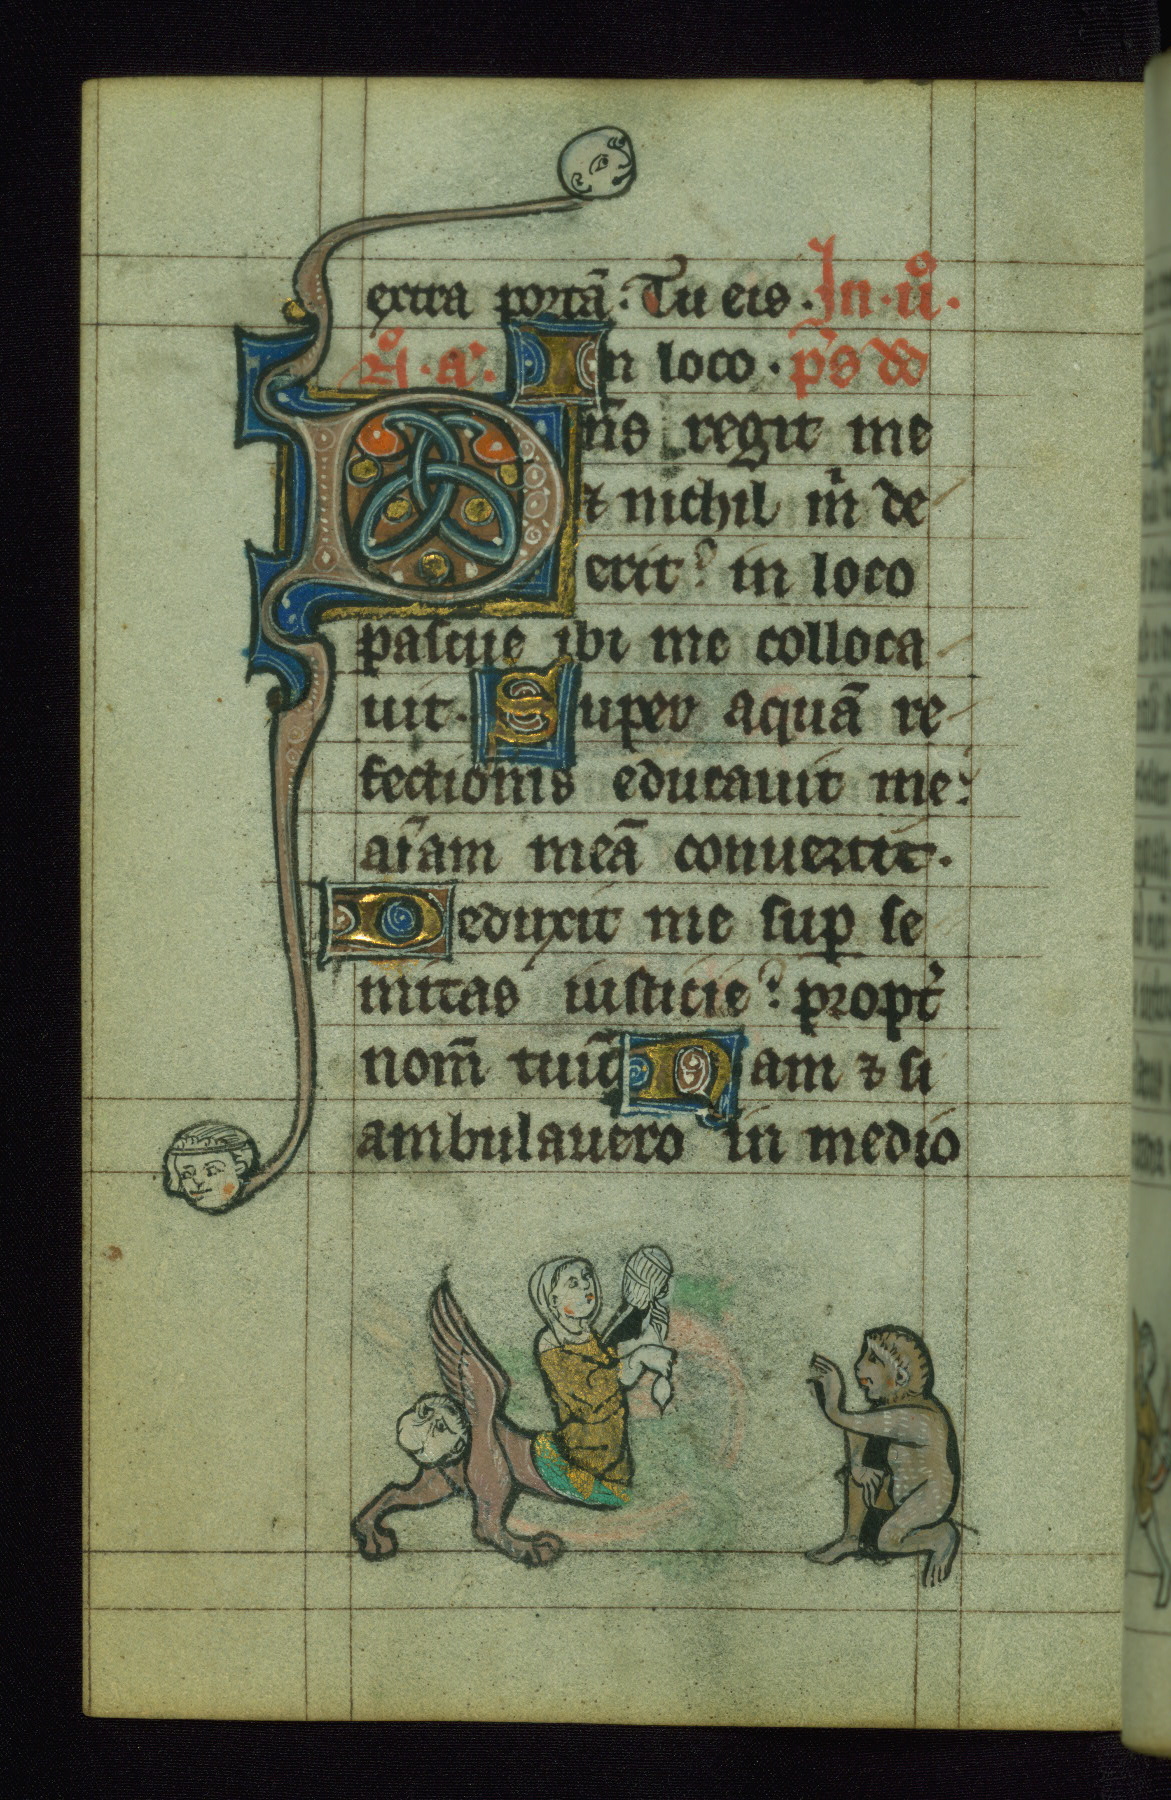 extra portā. Tu eis. In .ii°.
n°. a. In loco. p̄s dd
Dn̄s regit me
⁊ nichil m̄ de
erit? in loco
pascue ibi me colloca
uit. Super aquā re
fectionis educauit me:
aīam meā conuertit.
Deduxit me sup se
mitas iusticie? propt̄
nom̄ tuū Nam ⁊ si
ambulauero in medio